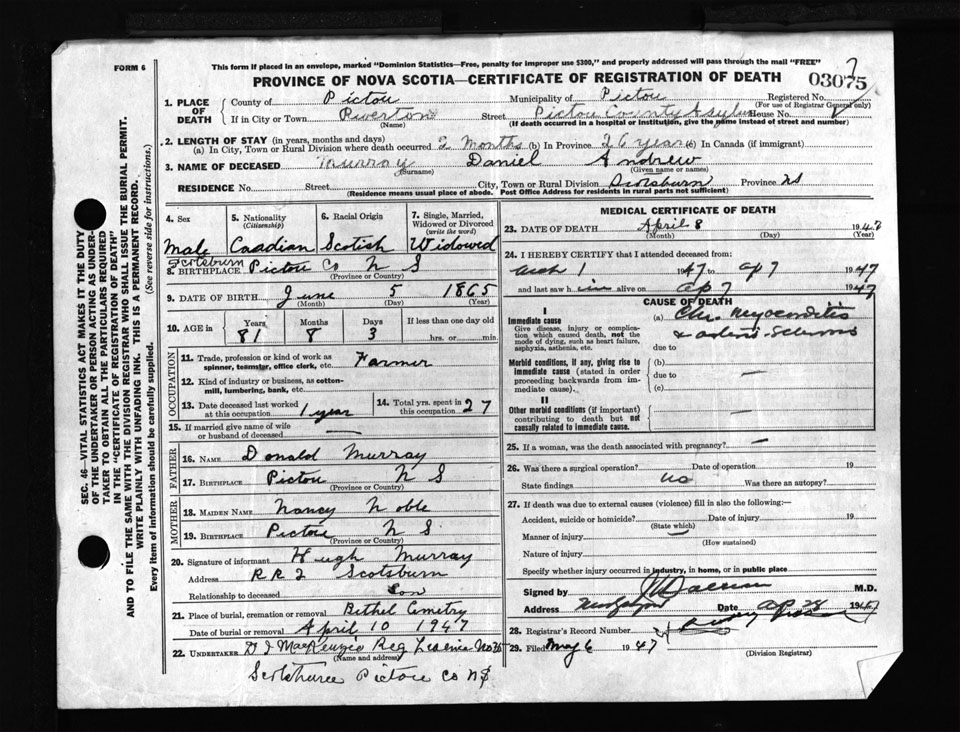 FORM 6
This form if placed in an envelope, marked "Dominion Statistics—Free, penalty for improper use $300," and properly addressed will pass through the mail "FREE"
PROVINCE OF NOVA SCOTIA—CERTIFICATE OF REGISTRATION OF DEATH
03075
1. PLACE OF DEATH
County of Pictou Municipality of Pictou Registered No.
(For use of Registrar General only)
If in City or Town Riverton Street Pictou County Asylum House No.
(Name) (If death occurred in a hospital or institution, give the name instead of street and number)
2. LENGTH OF STAY (in years, months and days)
(a) In City, Town or Rural Division where death occurred 2 Months (b) In Province 26 years (c) In Canada (if immigrant)
3. NAME OF DECEASED Murray Daniel Andrew
(Surname) (Given name or names)
RESIDENCE No. Street City, Town or Rural Division Scotsburn Province NS
(Residence means usual place of abode. Post Office Address for residents in rural parts not sufficient)
4. Sex
Male
5. Nationality
(Citizenship)
Caadian
6. Racial Origin
Scotish
7. Single, Married, Widowed or Divorced
(write the word)
Widowed
Scotsburn
8. BIRTHPLACE Pictou Co N S
(Province or Country)
9. DATE OF BIRTH June 5 1865
(Month) (Day) (Year)
10. AGE in Years Months Days If less than one day old
81 8 3 hrs. or min.
OCCUPATION
11. Trade, profession or kind of work as spinner, teamster, office clerk, etc. Farmer
12. Kind of industry or business, as cotton-mill, lumbering, bank, etc.
13. Date deceased last worked at this occupation 1 year
14. Total yrs. spent in this occupation 27
15. If married give name of wife or husband of deceased —
FATHER
16. NAME Donald Murray
17. BIRTHPLACE Pictou N S
(Province or Country)
MOTHER
18. MAIDEN NAME Nancy Noble
19. BIRTHPLACE Pictou N S
(Province or Country)
20. Signature of informant Hugh Murray
Address RR2 Scotsburn
Relationship to deceased Son
21. Place of burial, cremation or removal Bethel Cemetry
Date of burial or removal April 10 1947
22. UNDERTAKER D J MacKenzie Reg
(Name and address)
Pictou Co NS
MEDICAL CERTIFICATE OF DEATH
23. DATE OF DEATH April 8 1947
(Month) (Day) (Year)
24. I HEREBY CERTIFY that I attended deceased from:
1 1947 to ap 7 1947
and last saw him alive on ap 7 1947
CAUSE OF DEATH
I
Immediate cause
Give disease, injury or complication which caused death, not the mode of dying, such as heart failure, asphyxia, asthenia, etc.
(a) Chr. Myocarditis
due to
Morbid conditions, if any, giving rise to immediate cause (stated in order proceeding backwards from immediate cause).
(b)
due to —
(c)
II
Other morbid conditions (if important) contributing to death but not causally related to immediate cause. —
25. If a woman, was the death associated with pregnancy? —
26. Was there a surgical operation? Date of operation 19
State findings no Was there an autopsy?
27. If death was due to external causes (violence) fill in also the following:—
Accident, suicide or homicide? Date of injury 19
(State which)
Manner of injury
(How sustained)
Nature of injury
Specify whether injury occurred in industry, in home, or in public place
Signed by M.D.
Address New Glasgow Date ap 28 1947
28. Registrar's Record Number
29. Filed May 6 1947
(Division Registrar)
SEC. 46—VITAL STATISTICS ACT MAKES IT THE DUTY
OF THE UNDERTAKER OR PERSON ACTING AS UNDER-
TAKER TO OBTAIN ALL THE PARTICULARS REQUIRED
IN THE "CERTIFICATE OF REGISTRATION OF DEATH"
AND TO FILE THE SAME WITH THE DIVISION REGISTRAR WHO SHALL ISSUE THE BURIAL PERMIT.
WRITE PLAINLY WITH UNFADING INK. THIS IS A PERMANENT RECORD.
Every item of information should be carefully supplied. (See reverse side for instructions.)